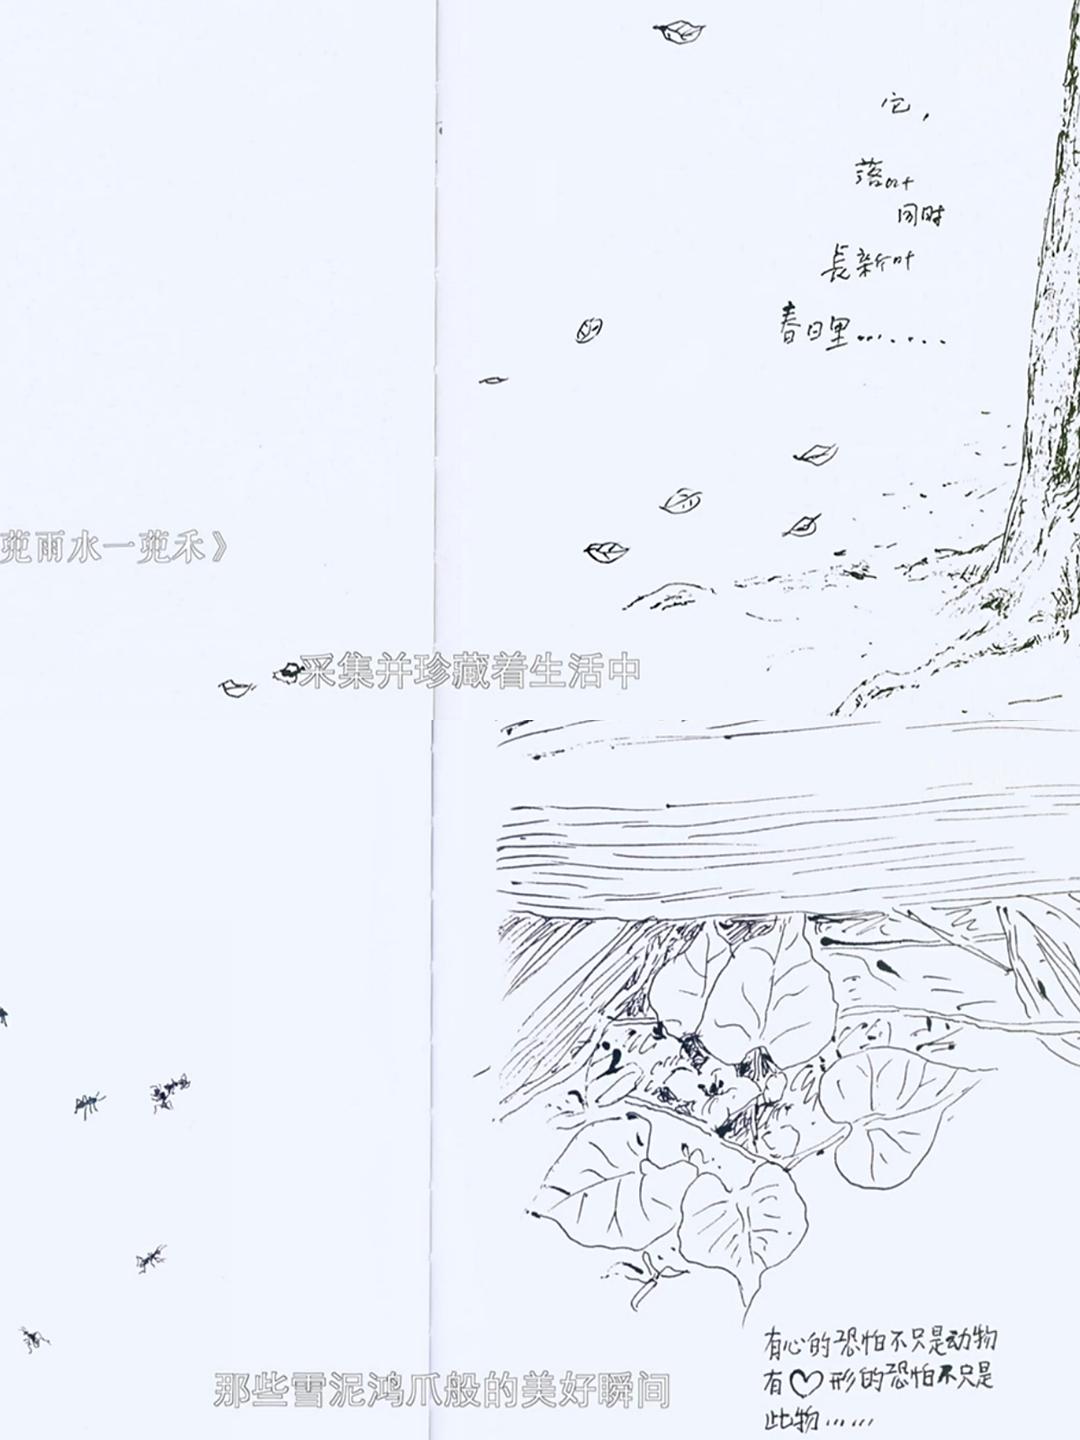 它，
落叶
同时
長新叶
春日里.......
蔸雨水一蔸禾》
采集并珍藏着生活中
有心的恐怕不只是动物
有♡形的恐怕不只是
此物……
那些雪泥鸿爪般的美好瞬间